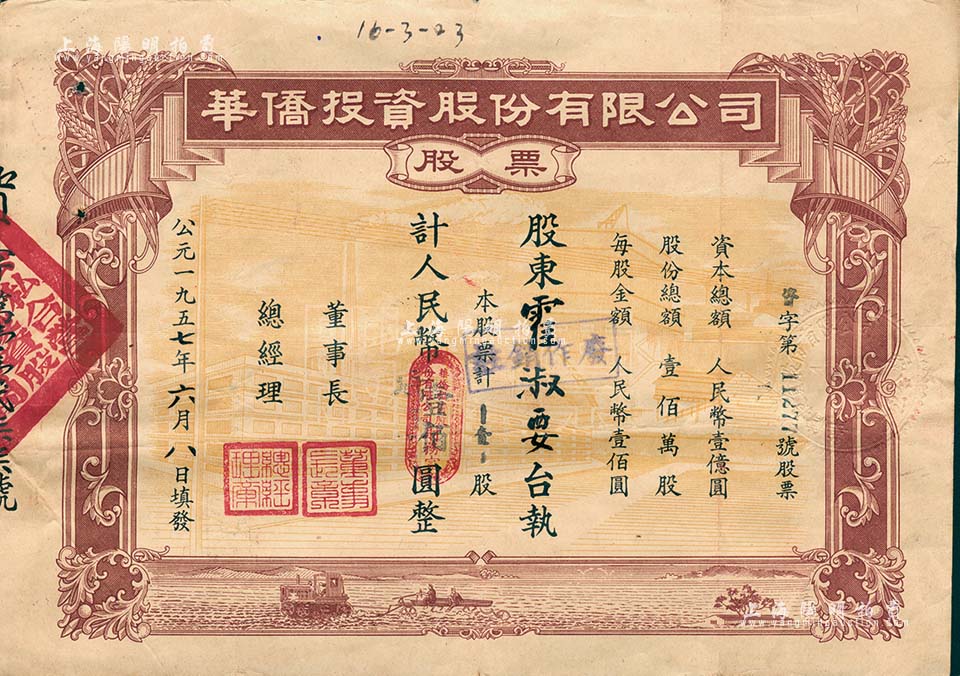 16-3-23
上海陽明拍賣
www.yangmingauction.com
華僑投資股份有限公司
股票
字第11277號股票
資本總額 人民幣壹億圓
股份總額 壹佰萬股
每股金額 人民幣壹佰圓
股東霍淑要台執
本股票計-壹-股
計人民幣壹佰圓整
董事長
總經理
公元一九五七年六月八日填發
作廢
董事長章
總經理章
上海陽明拍賣
www.yangmingauction.com
上海陽明拍賣
www.yangmingauction.com